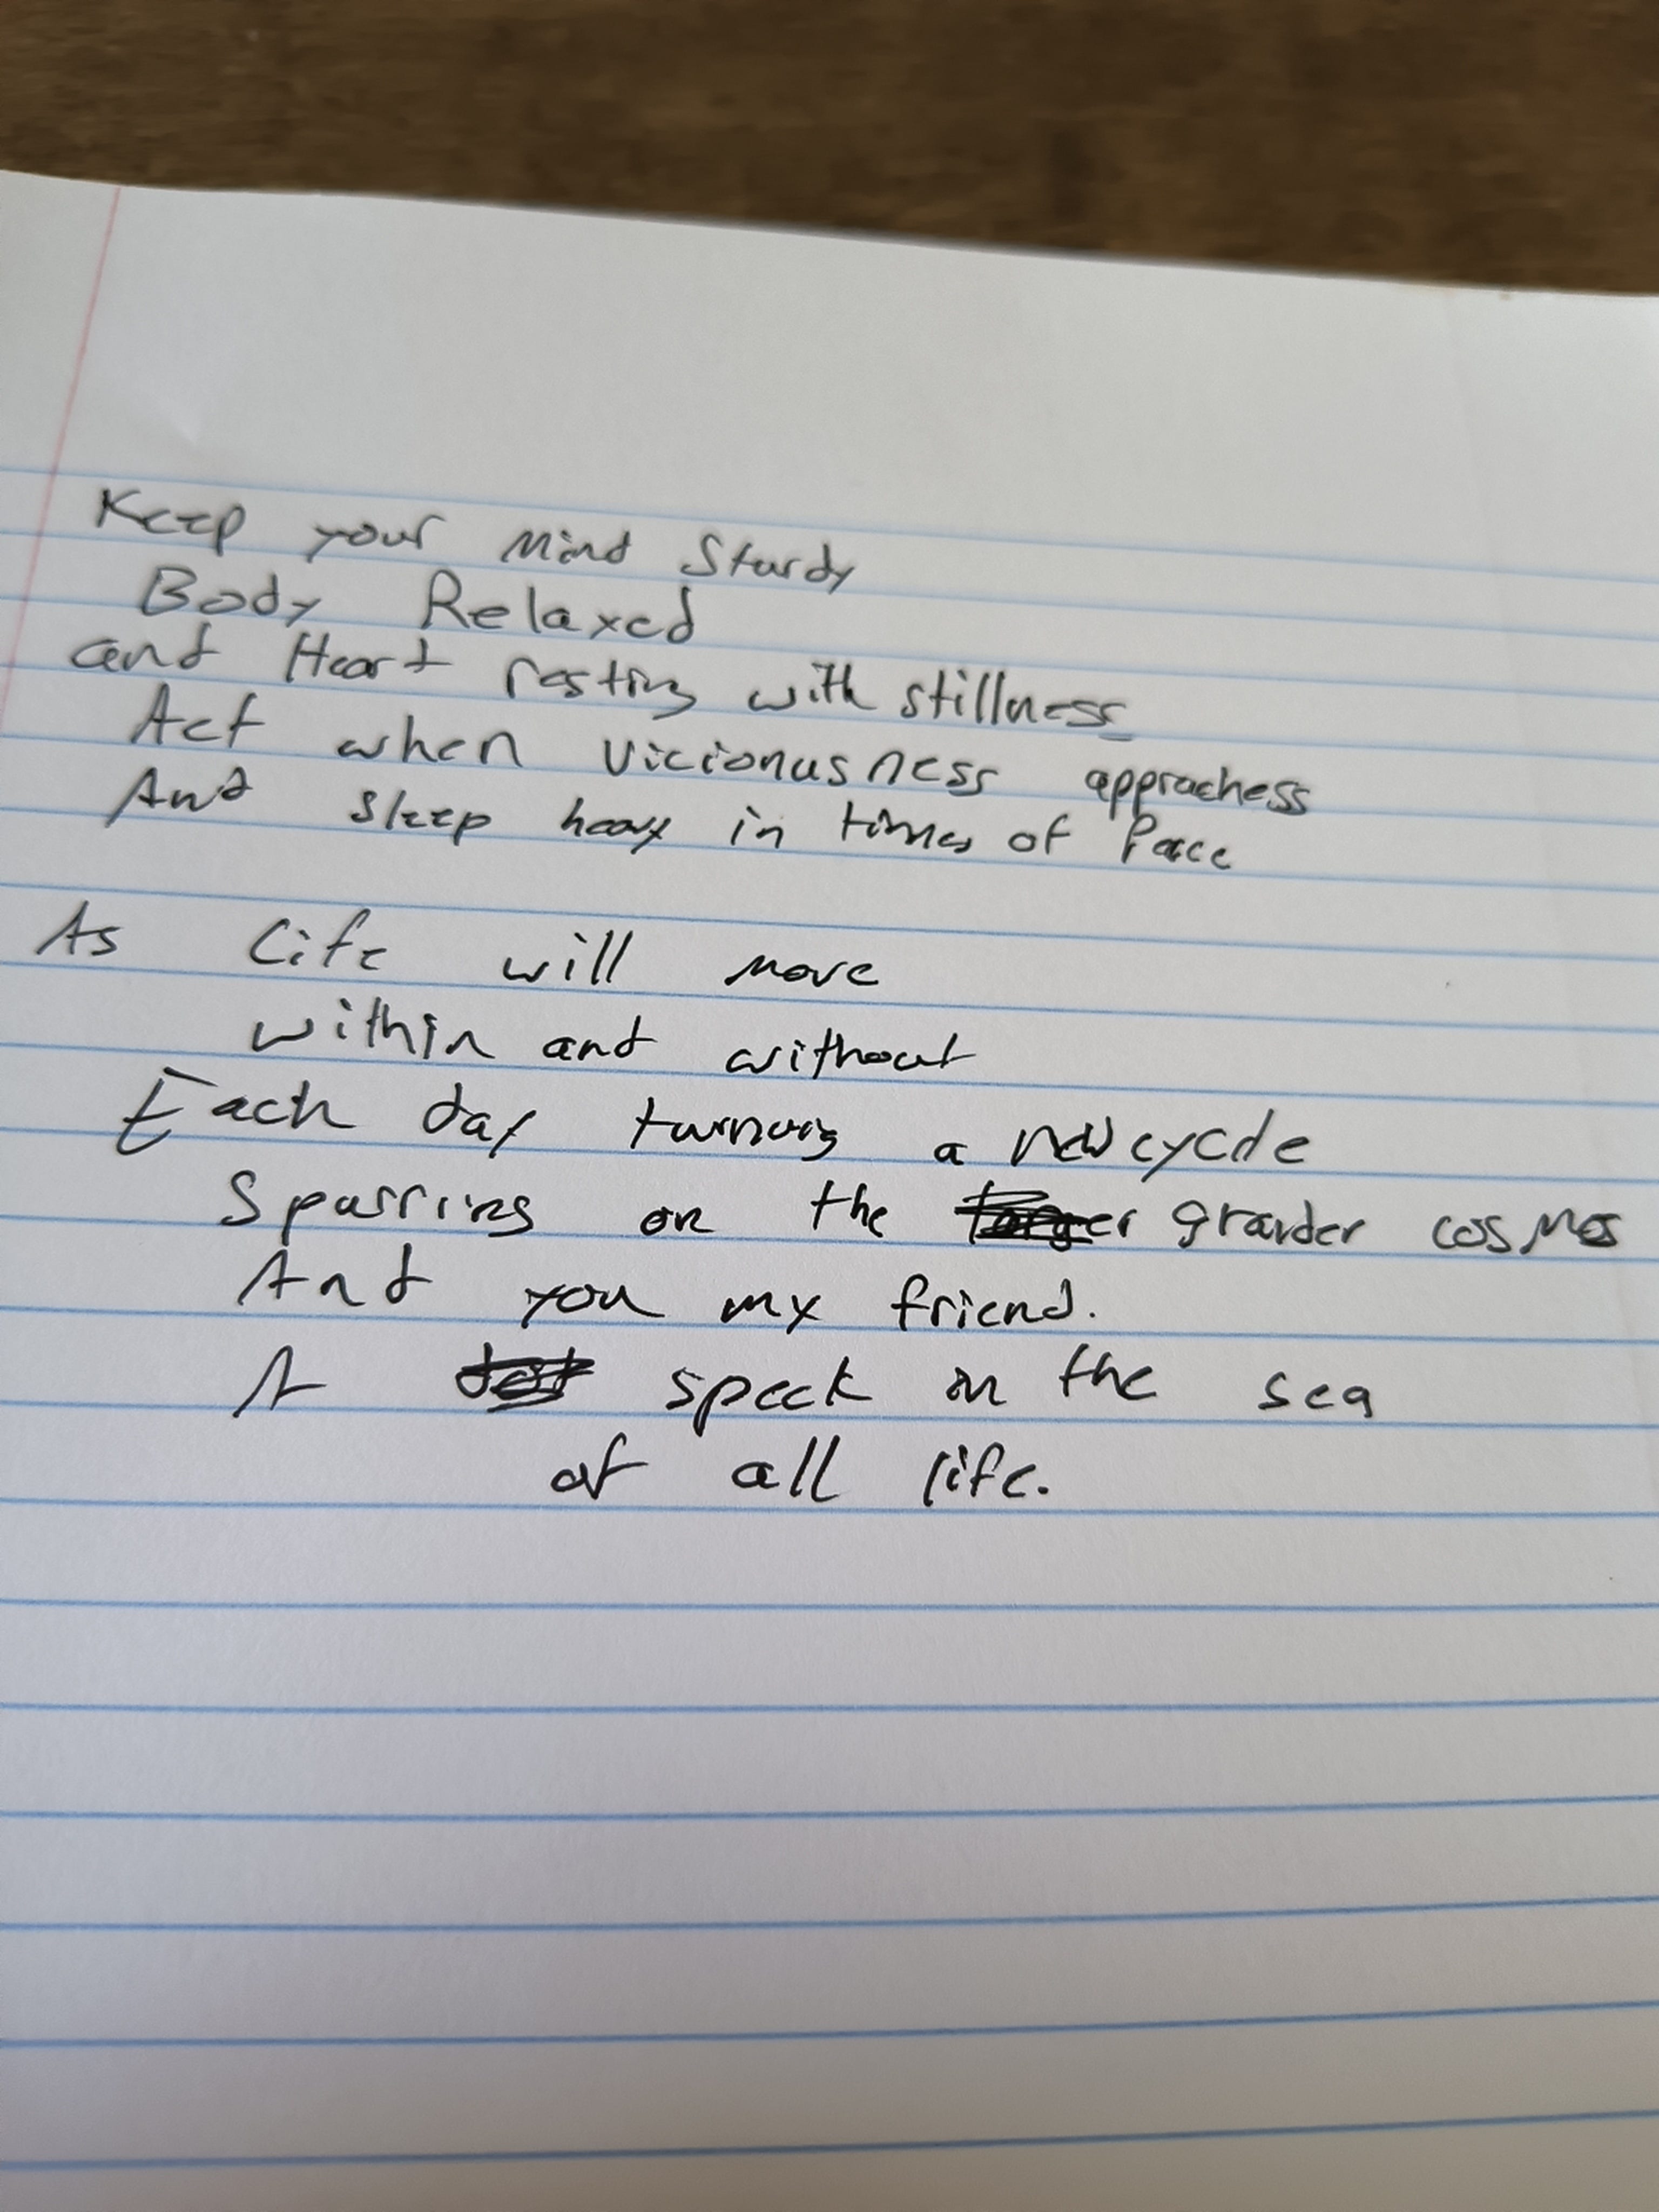 Keep your Mind Sturdy
Body Relaxed
and Heart resting with stillness
Act when vicionusness approachess
And sleep heavy in times of Peace
As Life will move
within and without
Each day turning a new cycle
Sparring on the grander cosmos
And you my friend.
A speck in the sea
of all life.